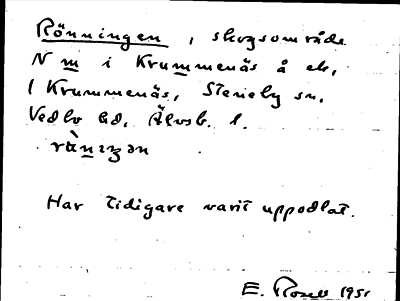 Rönningen, skogsområde
N m i Krummenäs å ek,
1 Krummenäs, Steneby sn.
Vedbo hd. Älvsb. l.
Har tidigare varit uppodlat.
E. Rosell 1951